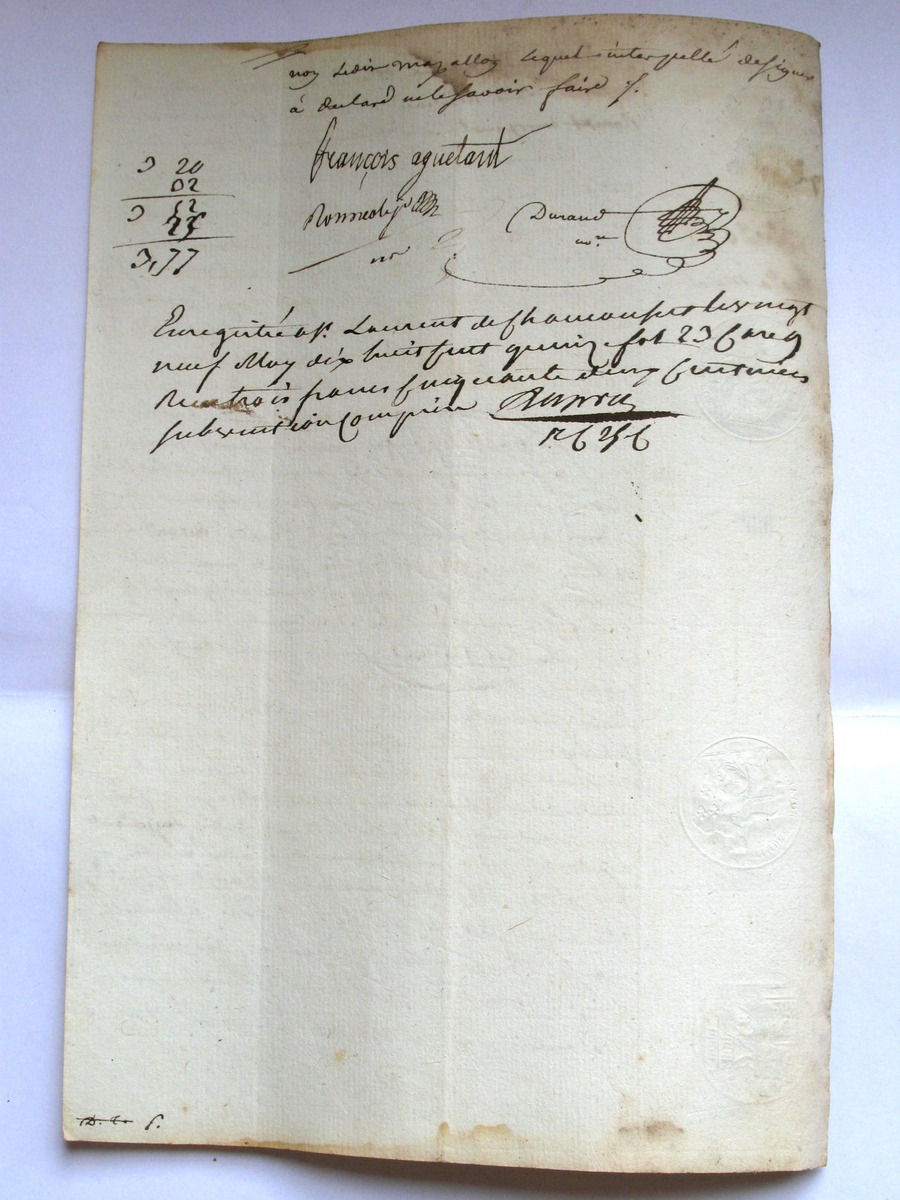 non ledit mazallon lequel interpellé de signer
à déclaré ne le savoir faire
françois aguetant
Durand
nore
3 20
02
3 52
25
3,77
Enregistré a st. Laurent de Chamousset le vingt
neuf May dix huit cent quinze fol 23 Case 9
Reçu trois francs cinquante deux Centimes
subvention Comprise